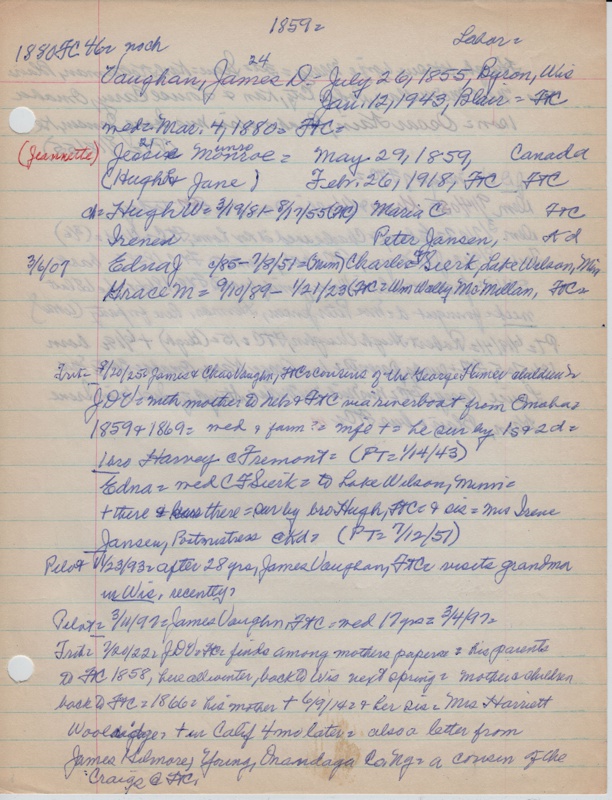 1859=
1880 FC 46= noch Labor=
24
Vaughan, James D - July 26, 1855, Byron, Wis
Jan. 12, 1943, Blair = FtC
med = Mar. 4, 1880 = FtC =
(Jeannette) Jessie Monroe = May 29, 1859, Canada
21 unro
(Hugh & Jane) Feb. 26, 1918, FtC FtC
d = Hugh W = 3/19/81 - 8/17/55 (FtC) Maria C FtC
Irene d Peter Jansen, Kd
3/6/07 Edna J c/85 - 7/8/51 = (Minn) Charlie F Sierk, Lake Wilson, Min
Grace M = 9/10/89 - 1/21/23 (FtC = Wm Wally McMillan, FtC =
Trit = 8/20/25 = James & Chas Vaughn, FtC = cousins of the George Heimes children =
JDV = with mother to Neb & FtC via riverboat from Omaha =
1859 & 1869 = med & farm = mfe + = he sur by 1 s & 2 d =
1 bro Harvey @ Fremont = (PT = 1/14/43)
Edna = med C F Sierk = to Lake Wilson, Minn =
+ there & there = sur by bro Hugh, FtC = & sis = Mrs Irene
Jansen, Postmistress = (PT = 7/12/51)
Pilot 11/23/93 = after 28 yrs, James Vaughan, FtC = visits grandma
in Wis, recently =
Pilot = 3/10/97 = James Vaughn, FtC = med 17 yrs = 3/4/97 =
Trit = JDV = FtC = finds among mothers papers = his parents
to FtC 1858, here all winter, back to Wis next spring = mother & children
back to FtC = 1866 = his mother + 6/9/14 = & her sis = Mrs Harriett
Wooldridge = + in Calif 4 mo later = also a letter from
James Gilmore, Young, Onandaga Co, NY = a cousin of the
Craigs @ FtC,